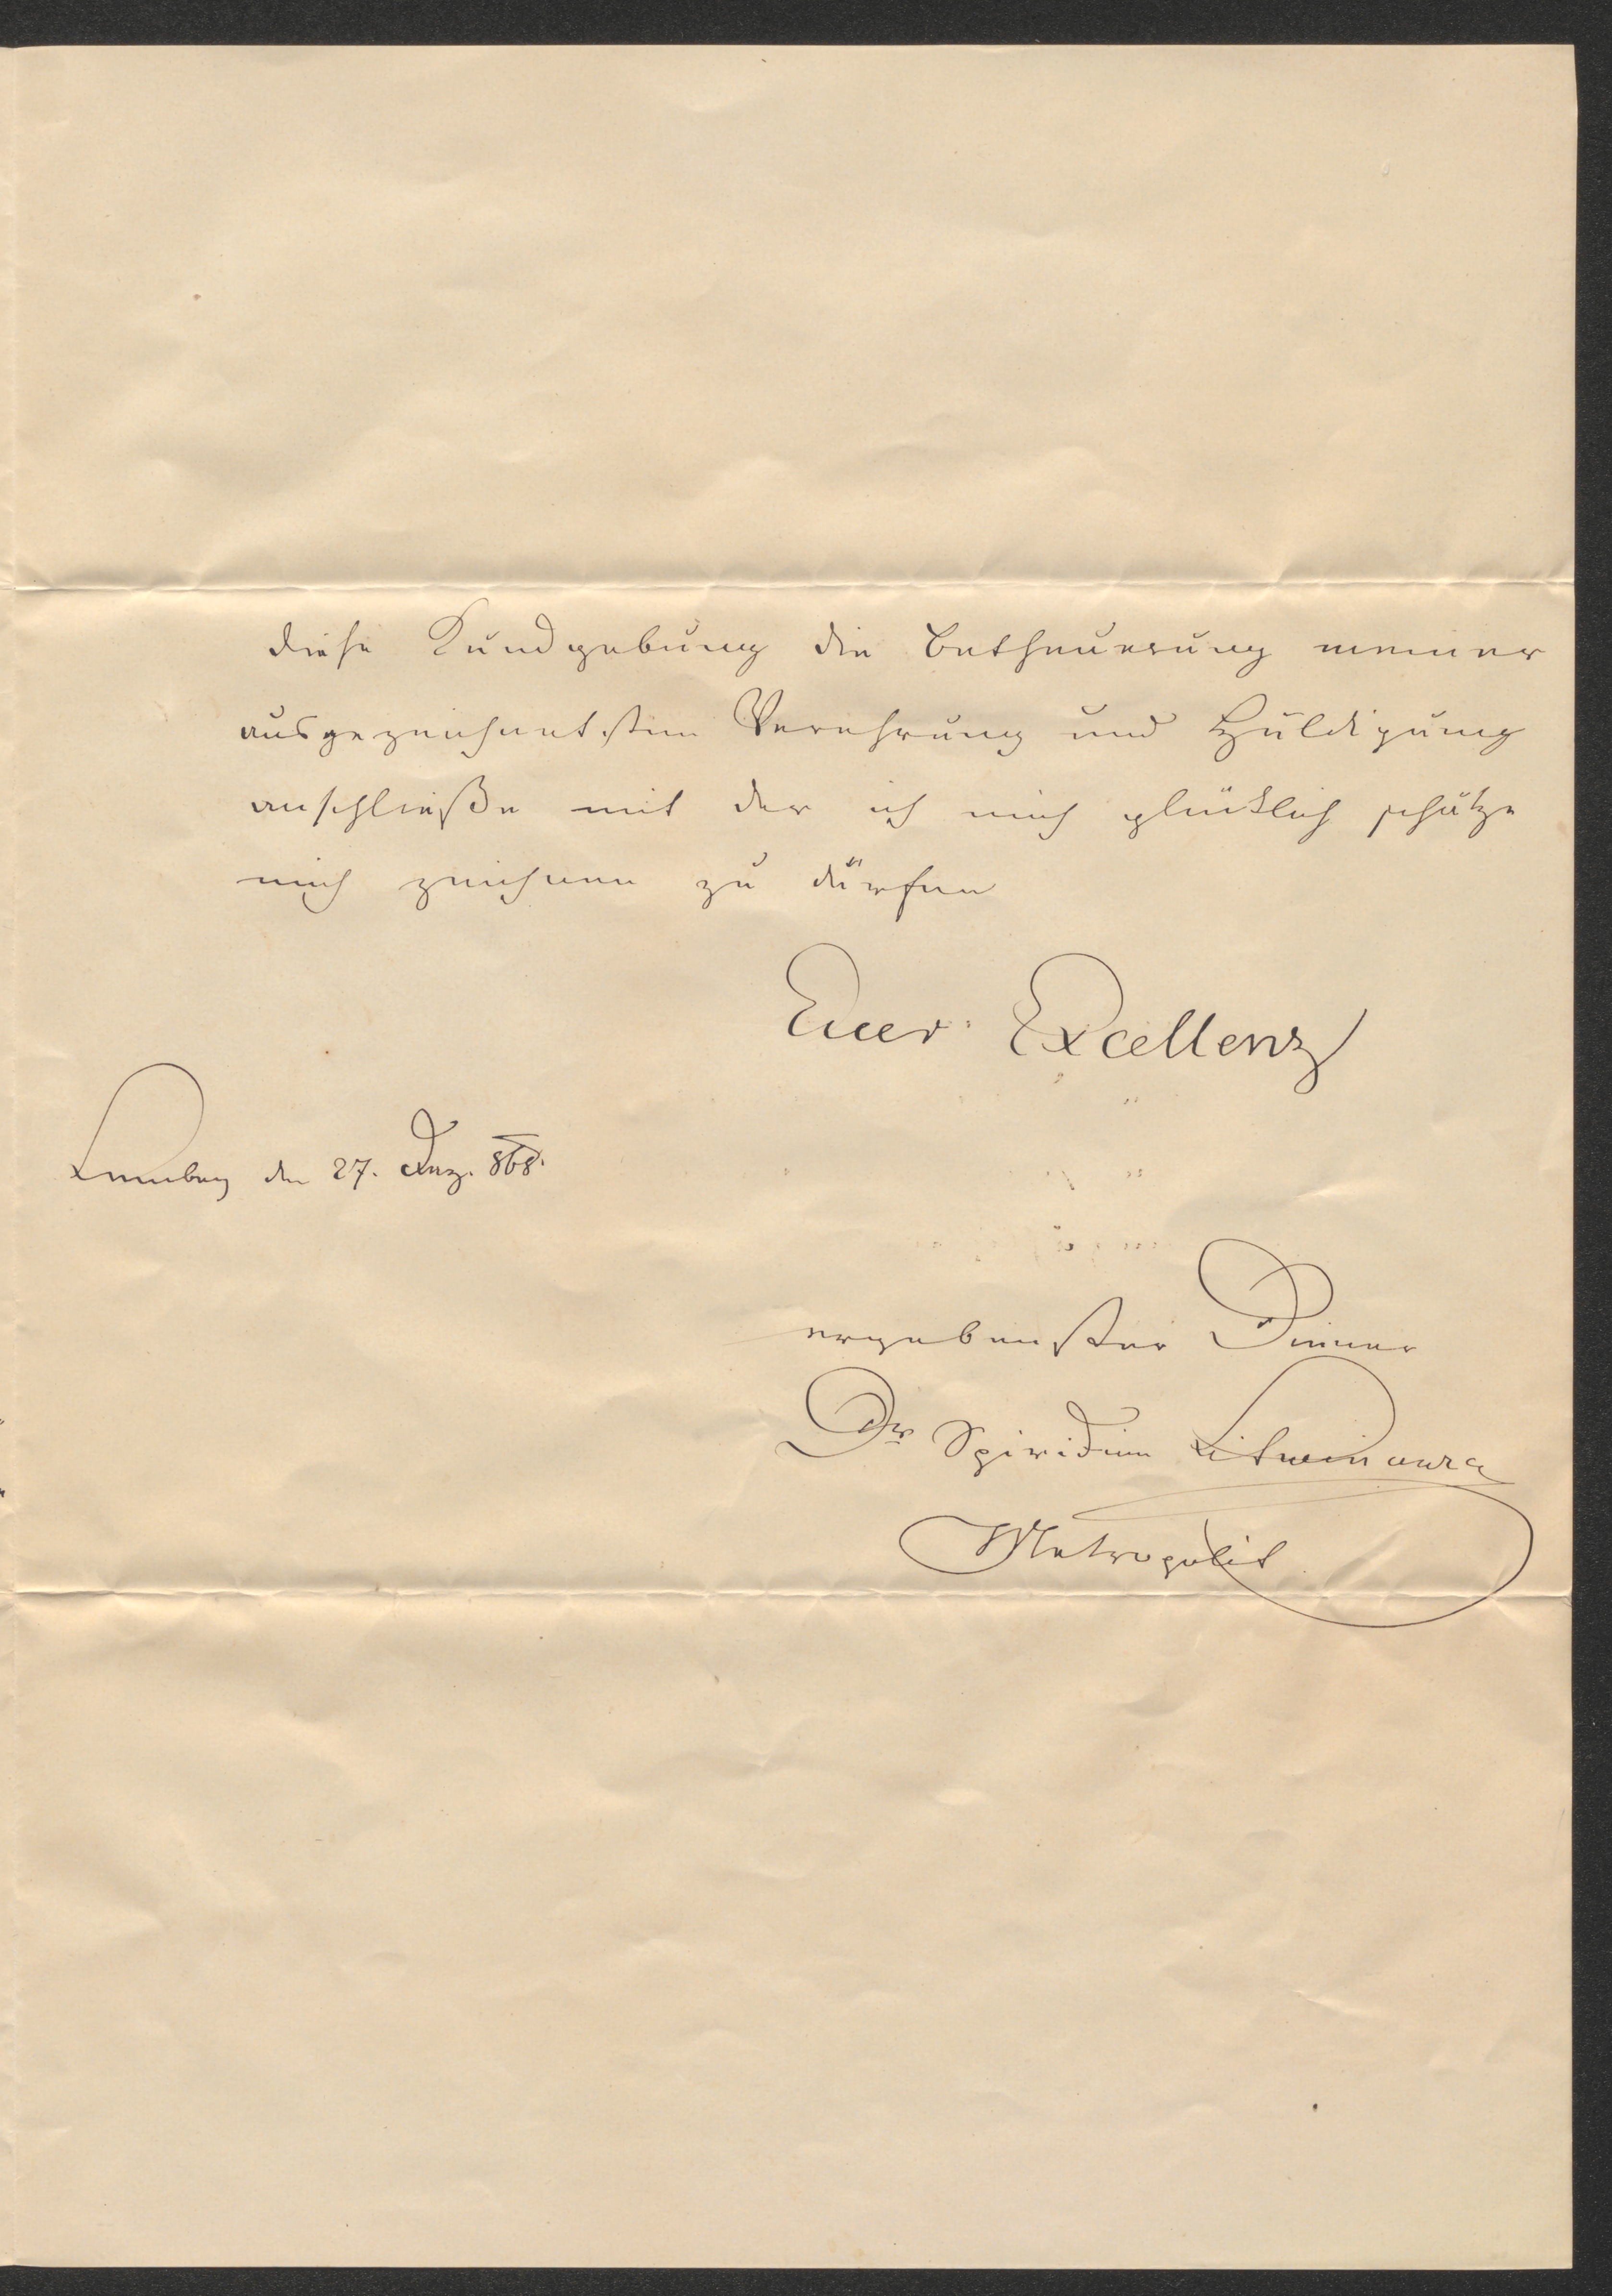 diese Kundgebung die Betheuerung meiner
ausgezeichnetsten Verehrung und Huldigung
anschließe mit der ich mich glücklich schätze
mich zeichnen zu dürfen
Euer Excellenz
Lemberg den 27. Dez. 868.
ergebenster Diener
Dr Spiridion Litwinowicz
Metropolit